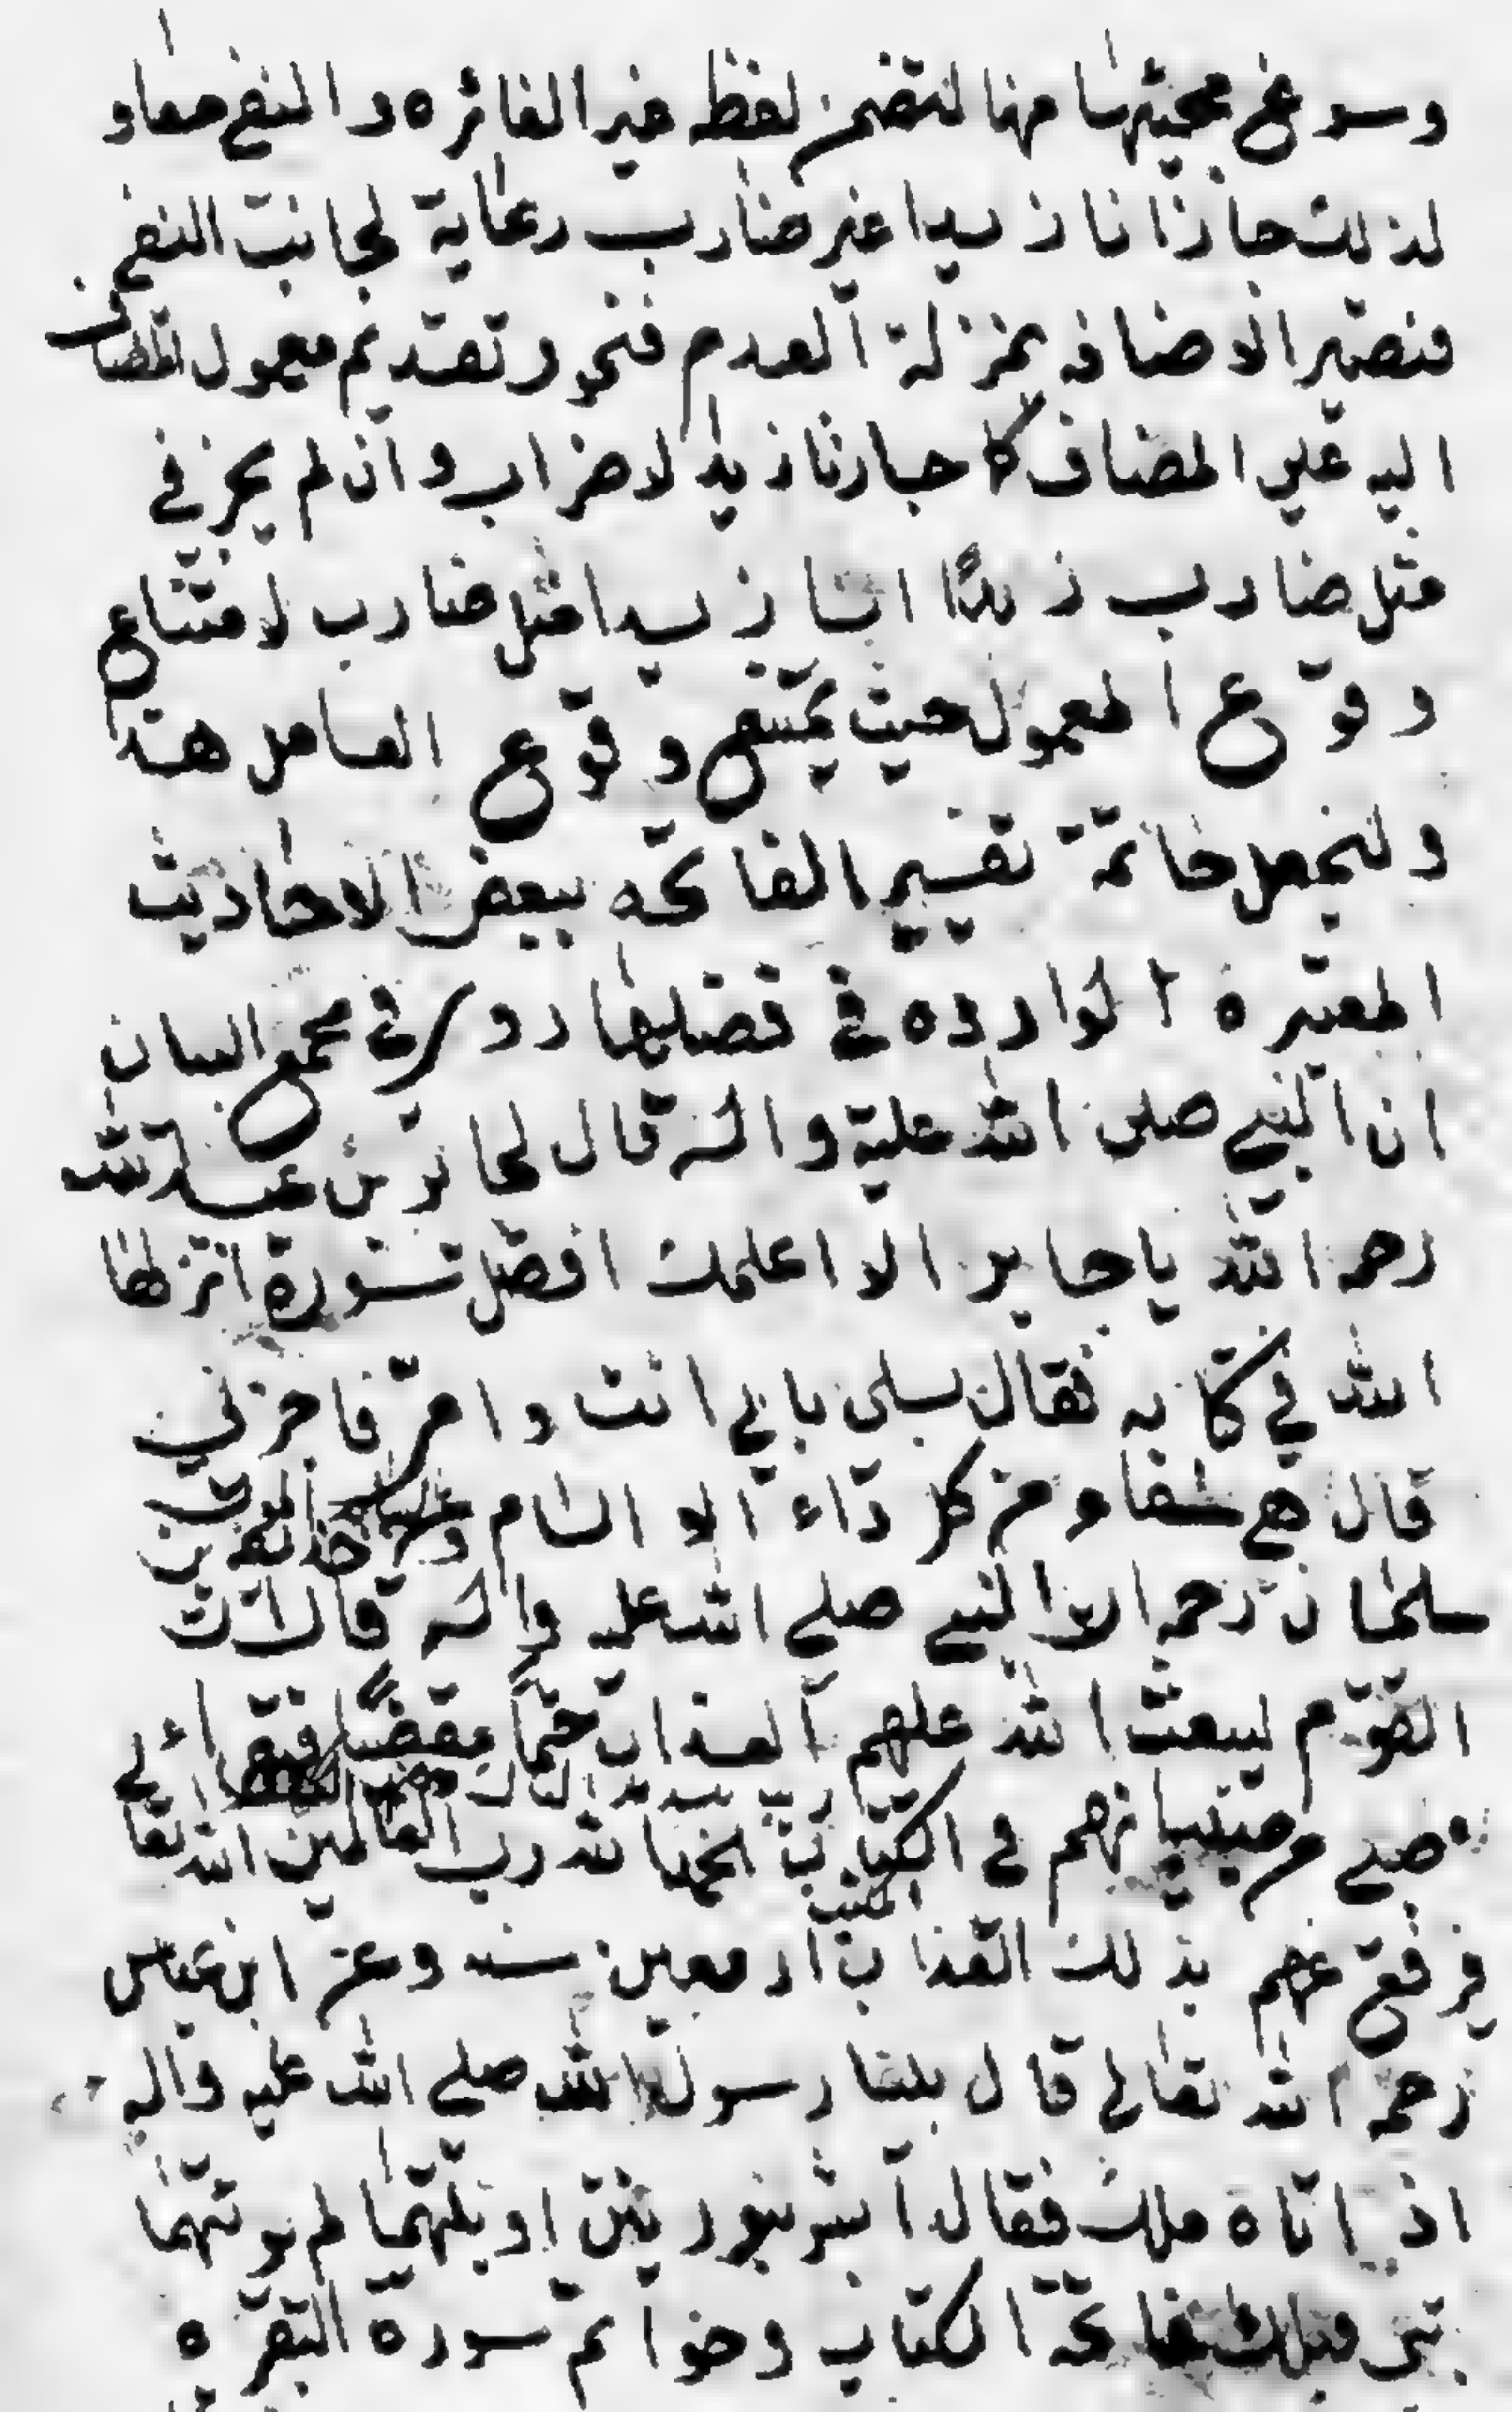 وسوغ مجيئها هنا لتضمن لفظ غير المغائره والنفي معا و
لذلك جاز انا زيدا غير ضارب رعاية لجانب النفي
فتصير الاضافه بمنزلة العدم فيجوز تقديم معمول المضاف
اليه على المضاف كما جاز انا زيدا لا ضراب وان لم يجز في
مثل ضارب زيدًا انا زيدا مثل ضارب لامتناع
وقوع المعمول حيث يمتنع وقوع العامل هذا
ولنجعل خاتمة تفسير الفاتحه ببعض الاحاديث
المعتبره الوارده في فضلها روى في مجمع البيان
ان النبي صلى الله عليه واله قال لجابر بن عبد الله
رحمه الله يا جابر الا اعلمك افضل سورة انزلها
الله في كتابه فقال بلى بابي انت وامي فاخبرني
قال هي شفاء من كل داء الا السام والسام الموت وعن حذيفه بن
سلمان رحمه الله النبي صلى الله عليه واله قال ان
القوم ليبعث الله عليهم العذاب حتما مقضيا فيقراء
صبي من صبيانهم في الكتاب الحمد لله رب العالمين الله تعا
المكتب
فيرفع عنهم بذلك العذاب اربعين سنه وعن ابن عباس
رحمه الله تعالى قال بينا رسول الله صلى الله عليه واله
اذ اتاه ملك فقال ابشر بنورين اوتيتهما لم يوتهما
نبي قبلك فاتحة الكتاب وخواتيم سورة البقره